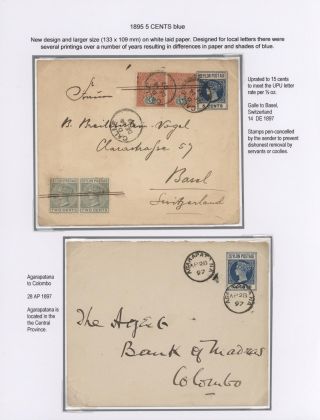 1895 5 CENTS blue
New design and larger size (133 x 109 mm) on white laid paper. Designed for local letters there were
several printings over a number of years resulting in differences in paper and shades of blue.
Uprated to 15 cents
to meet the UPU letter
rate per ½ oz.
Galle to Basel,
Switzerland
14 DE 1897
Stamps pen-cancelled
by the sender to prevent
dishonest removal by
servants or coolies.
CEYLON POSTAGE
5 CENTS
GALLE
B. Breitenstein-Vogel
Clarastrasse 57
Basel
Switzerland
TWO CENTS
TWO CENTS
Agarapatana
to Colombo
28 AP 1897
Agarapatana is
located in the
the Central
Province.
CEYLON POSTAGE
AGARAPATANA
AP 28
97
AGARAPATANA
AP 28
97
The Agent
Bank of Madras
Colombo